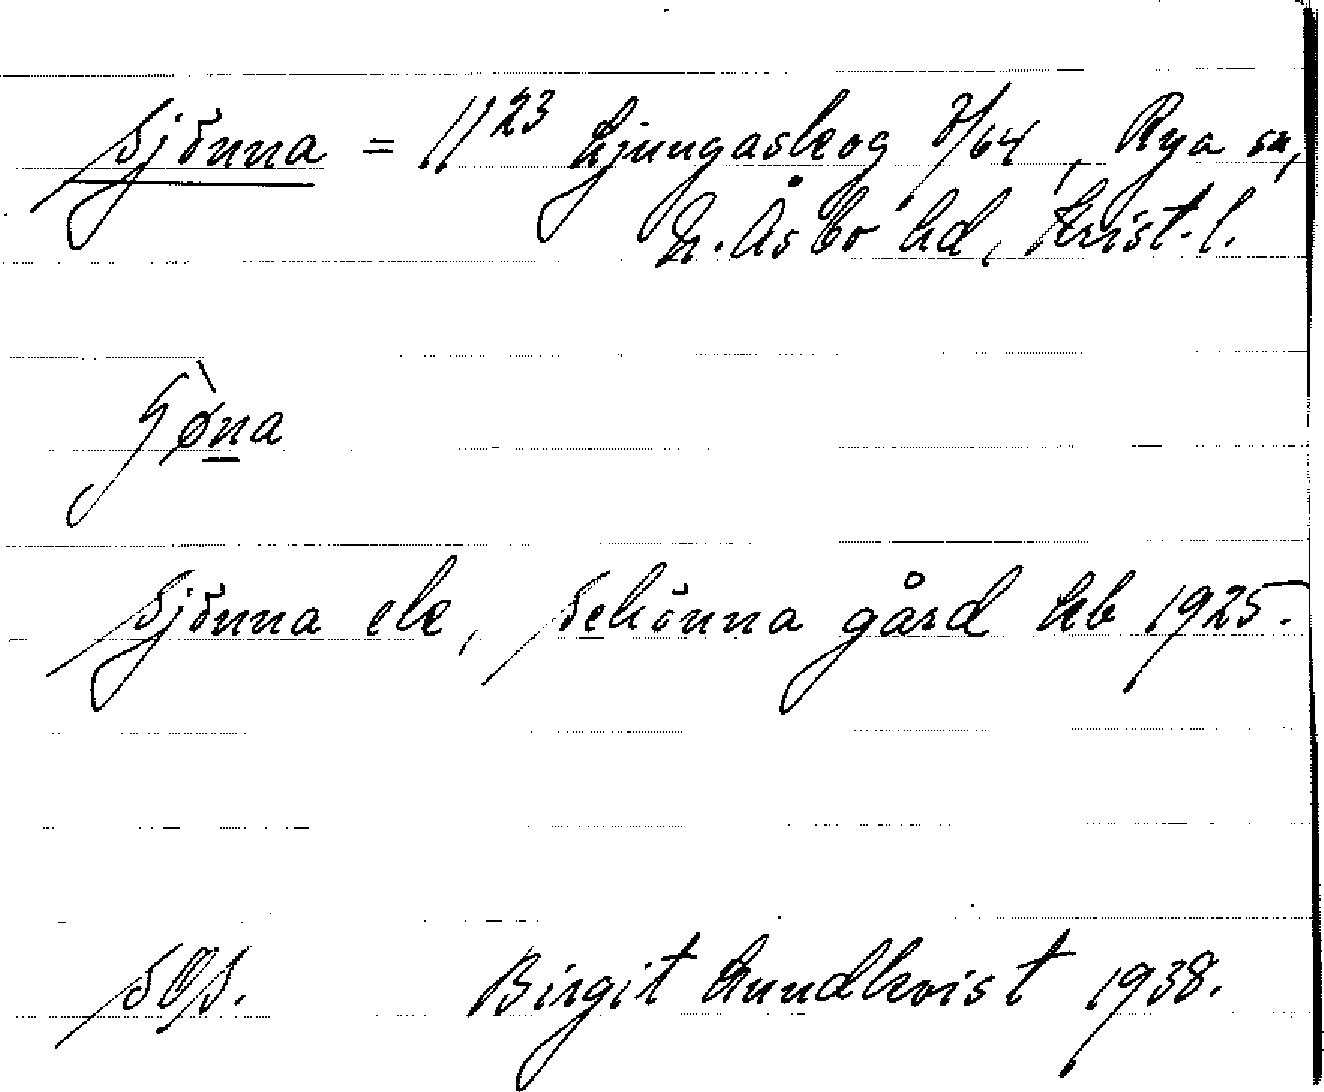 Sjönna = 11 23 Ljungaskog 3/64, Rya sn,
N. Åsbo hd, Krist. l.
ʃø̀na
Sjönna ek, Schönna gård kb 1925.
Birgit Lundkvist 1938.